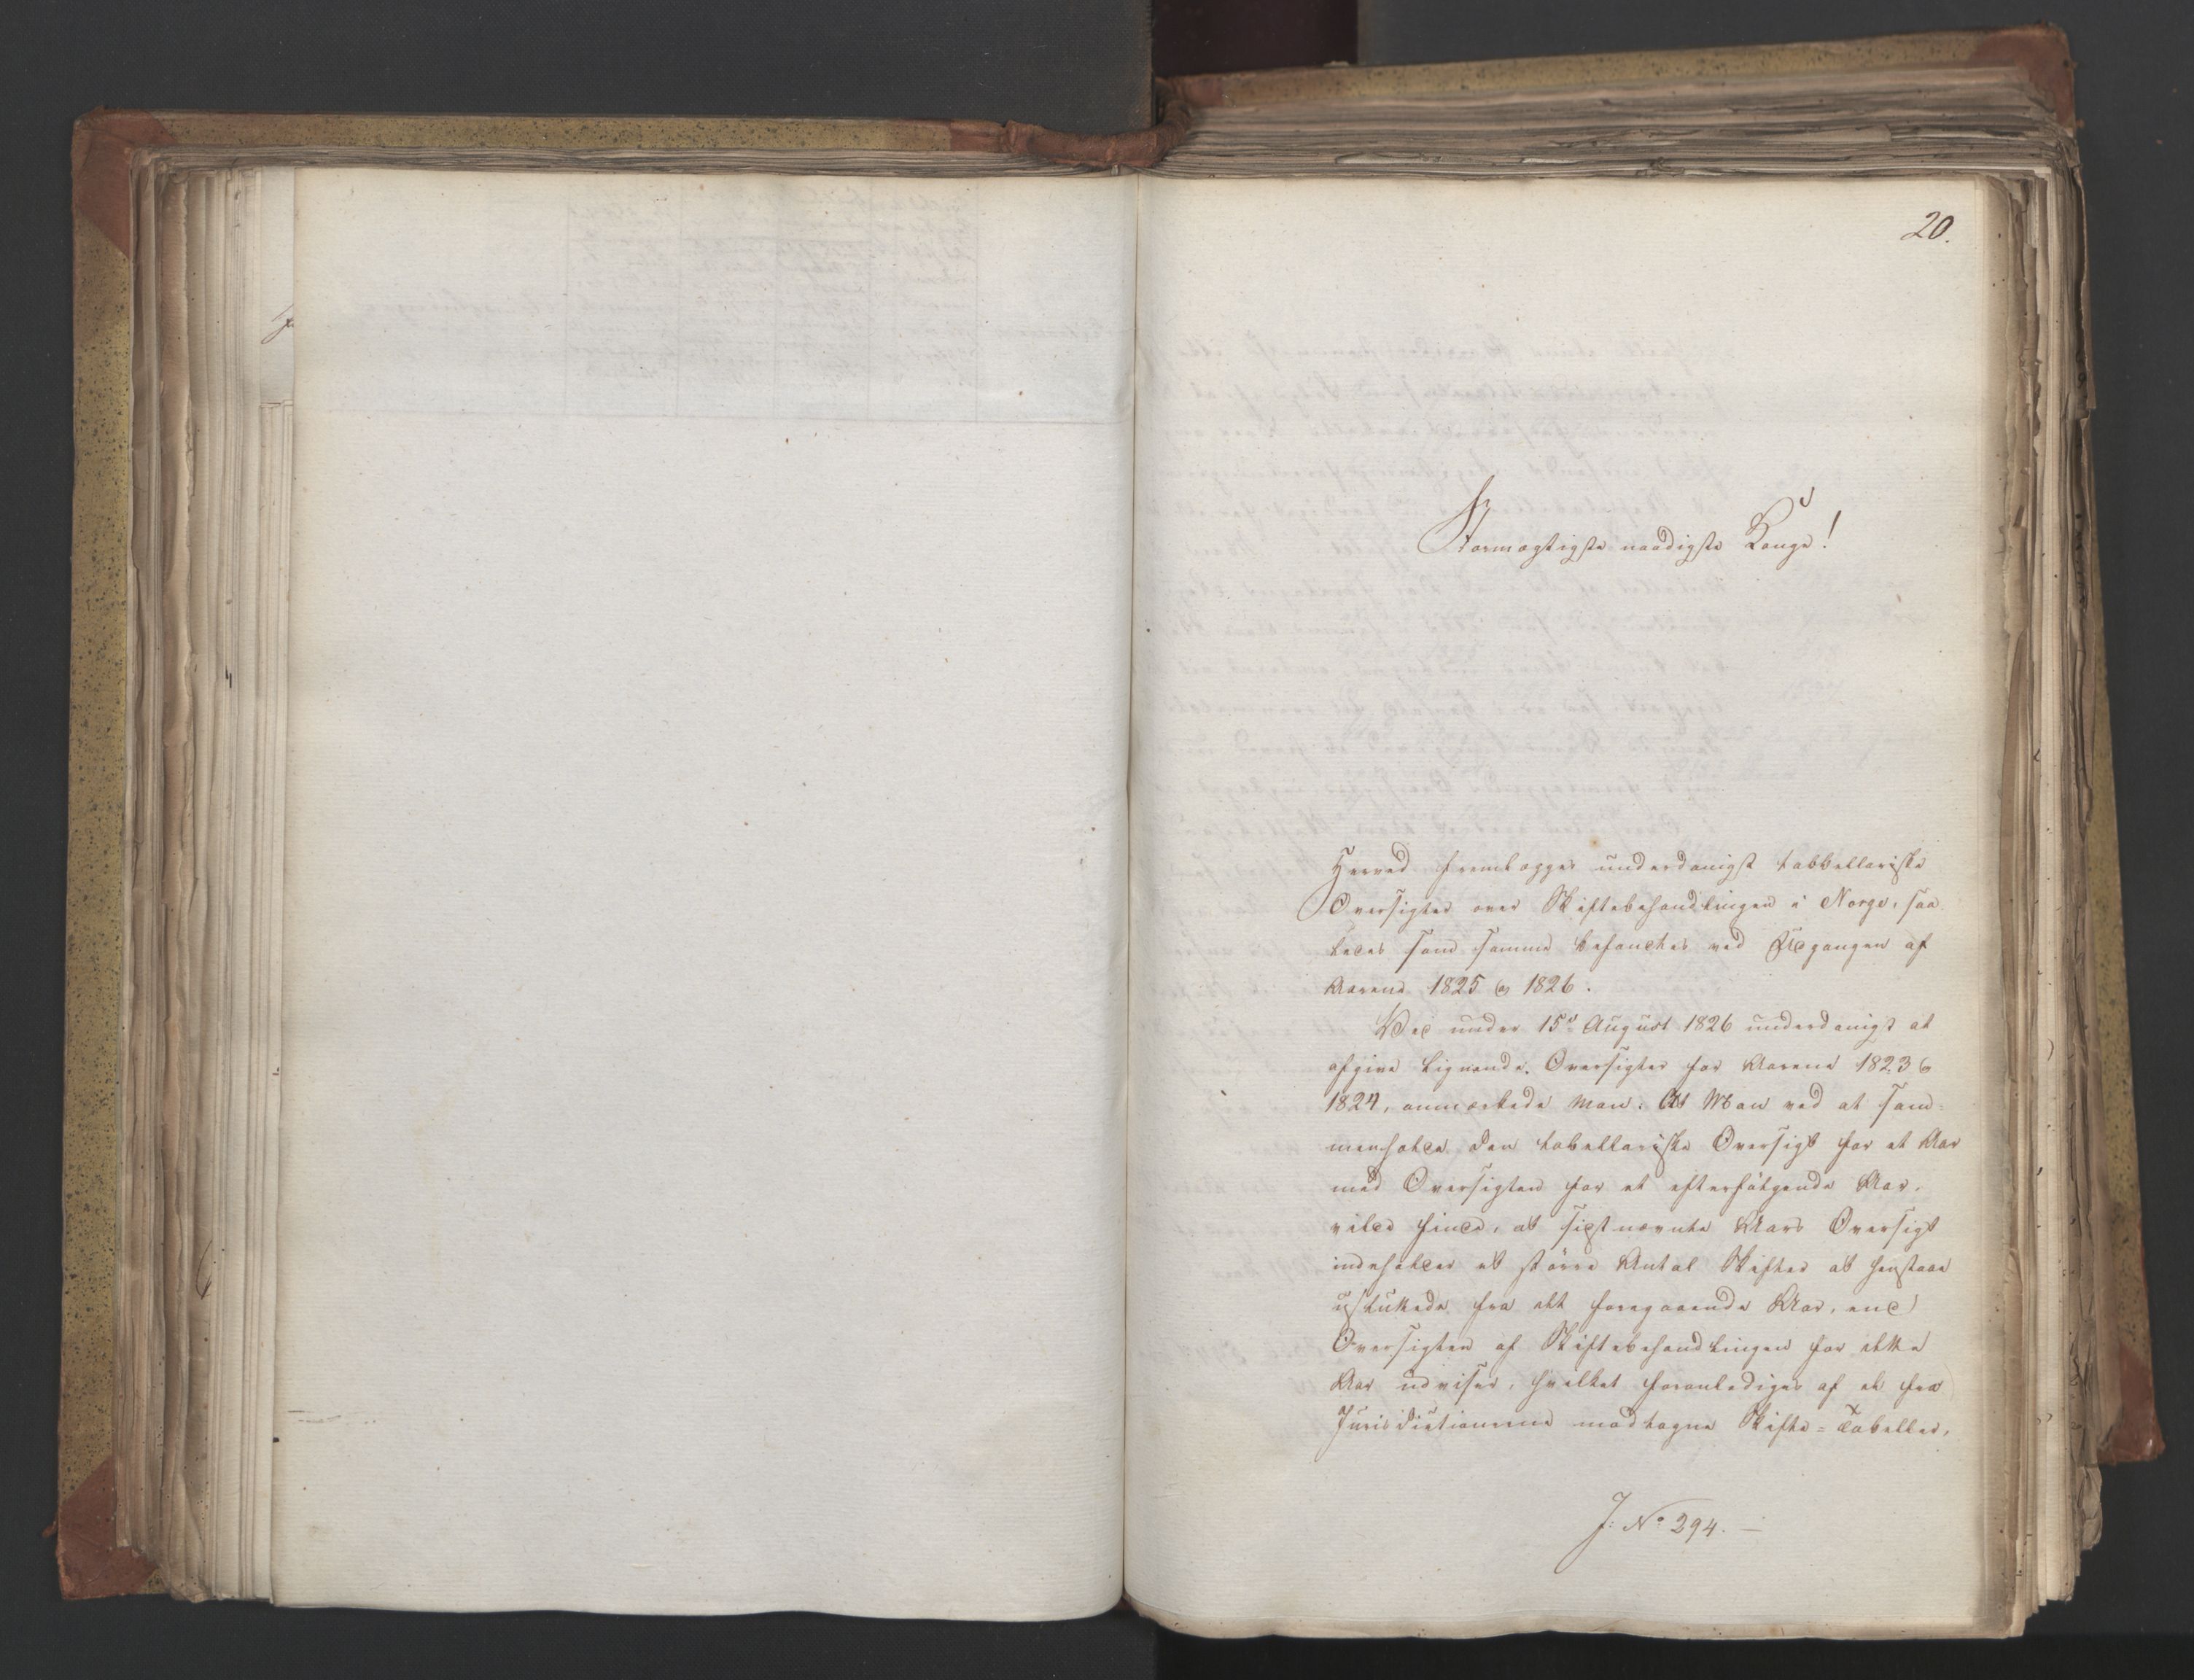 20.
Stormægtigste naadigste Konge!
Herved fremlægges underdanigst tabbellariske
Oversigter over Skiftebehandlingen i Norge, saa
ledes som samme befandtes ved Udgangen af
Aarene 1825 og 1826.
Ved under 15de August 1826 underdanigst at
afgive lignende Oversigter for Aarene 1823 og
1824, anmærkede man: At Man ved at sam-
menholde den tabellariske Oversigt for et Aar
med Oversigten for et efterfølgende Aar,
vilde finde, at sidstnævnte Aars Oversigt
indeholder et større Antal Skifter at henstaae
usluttede fra det foregaaende Aar, end
Oversigten af Skiftebehandlingen for dette
Aar udviser, hvilket foranlediges af de fra
Jurisdictionerne modtagne Skifte-Tabeller,
J: No 294. —